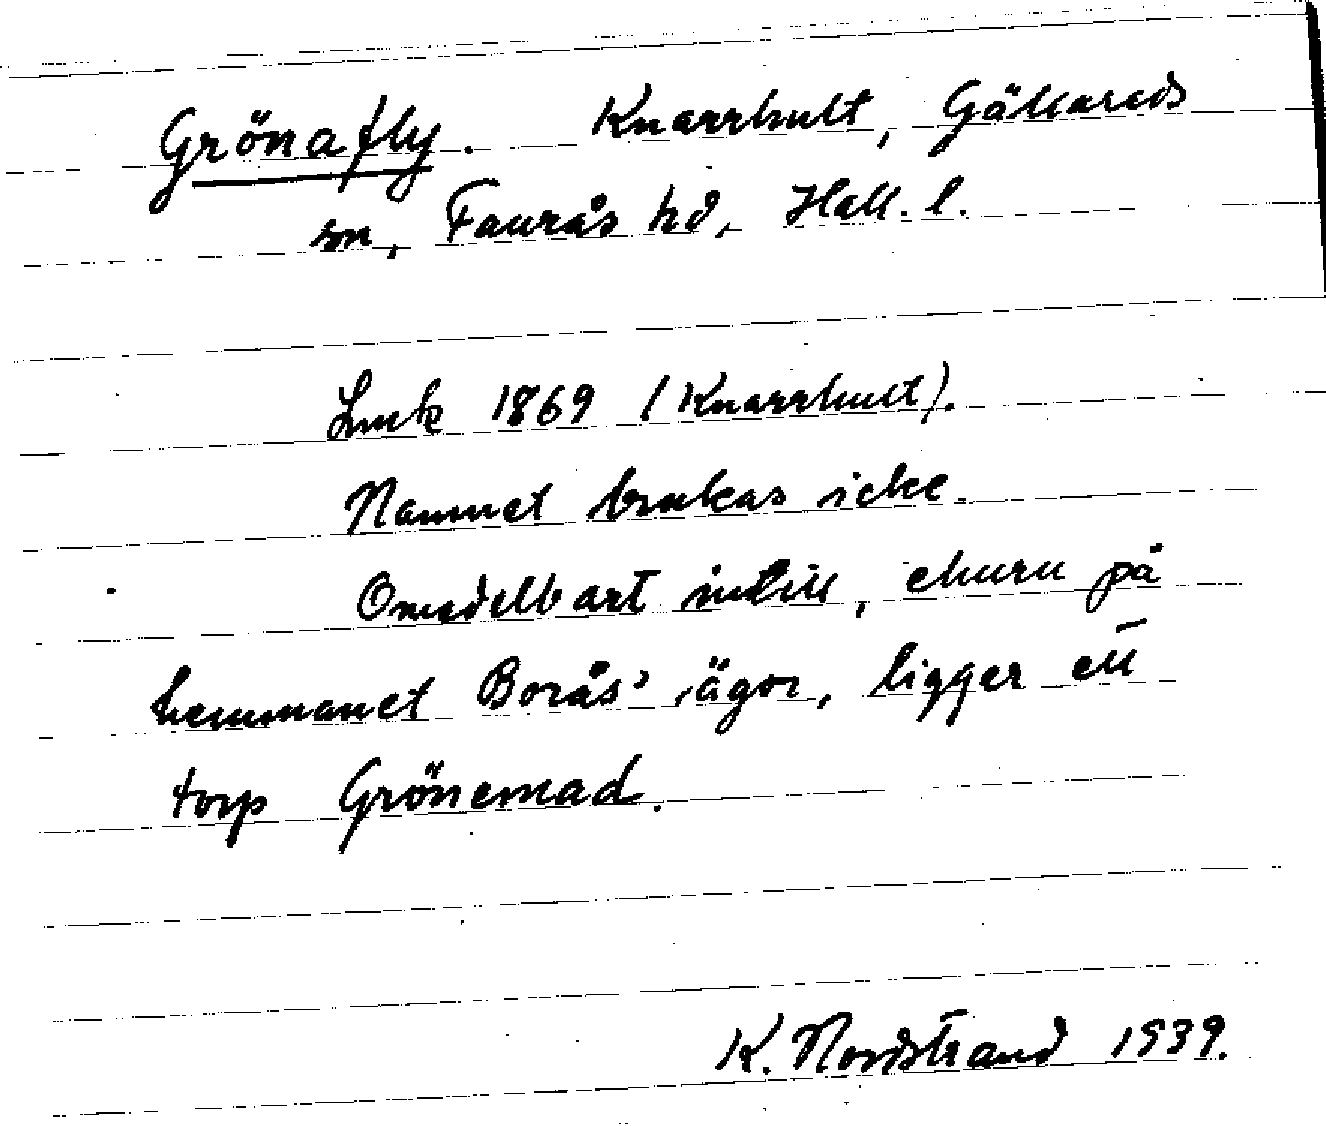 Grönafly. Knarrhult, Gällareds
sn, Faurås hd, Hall. l.
Lmk 1869 (Knarrhult).
Namnet brukas icke.
Omedelbart intill, ehuru på
hemmanet Borås' ägor, ligger ett
torp Grönemad.
K. Nordstrand 1939.